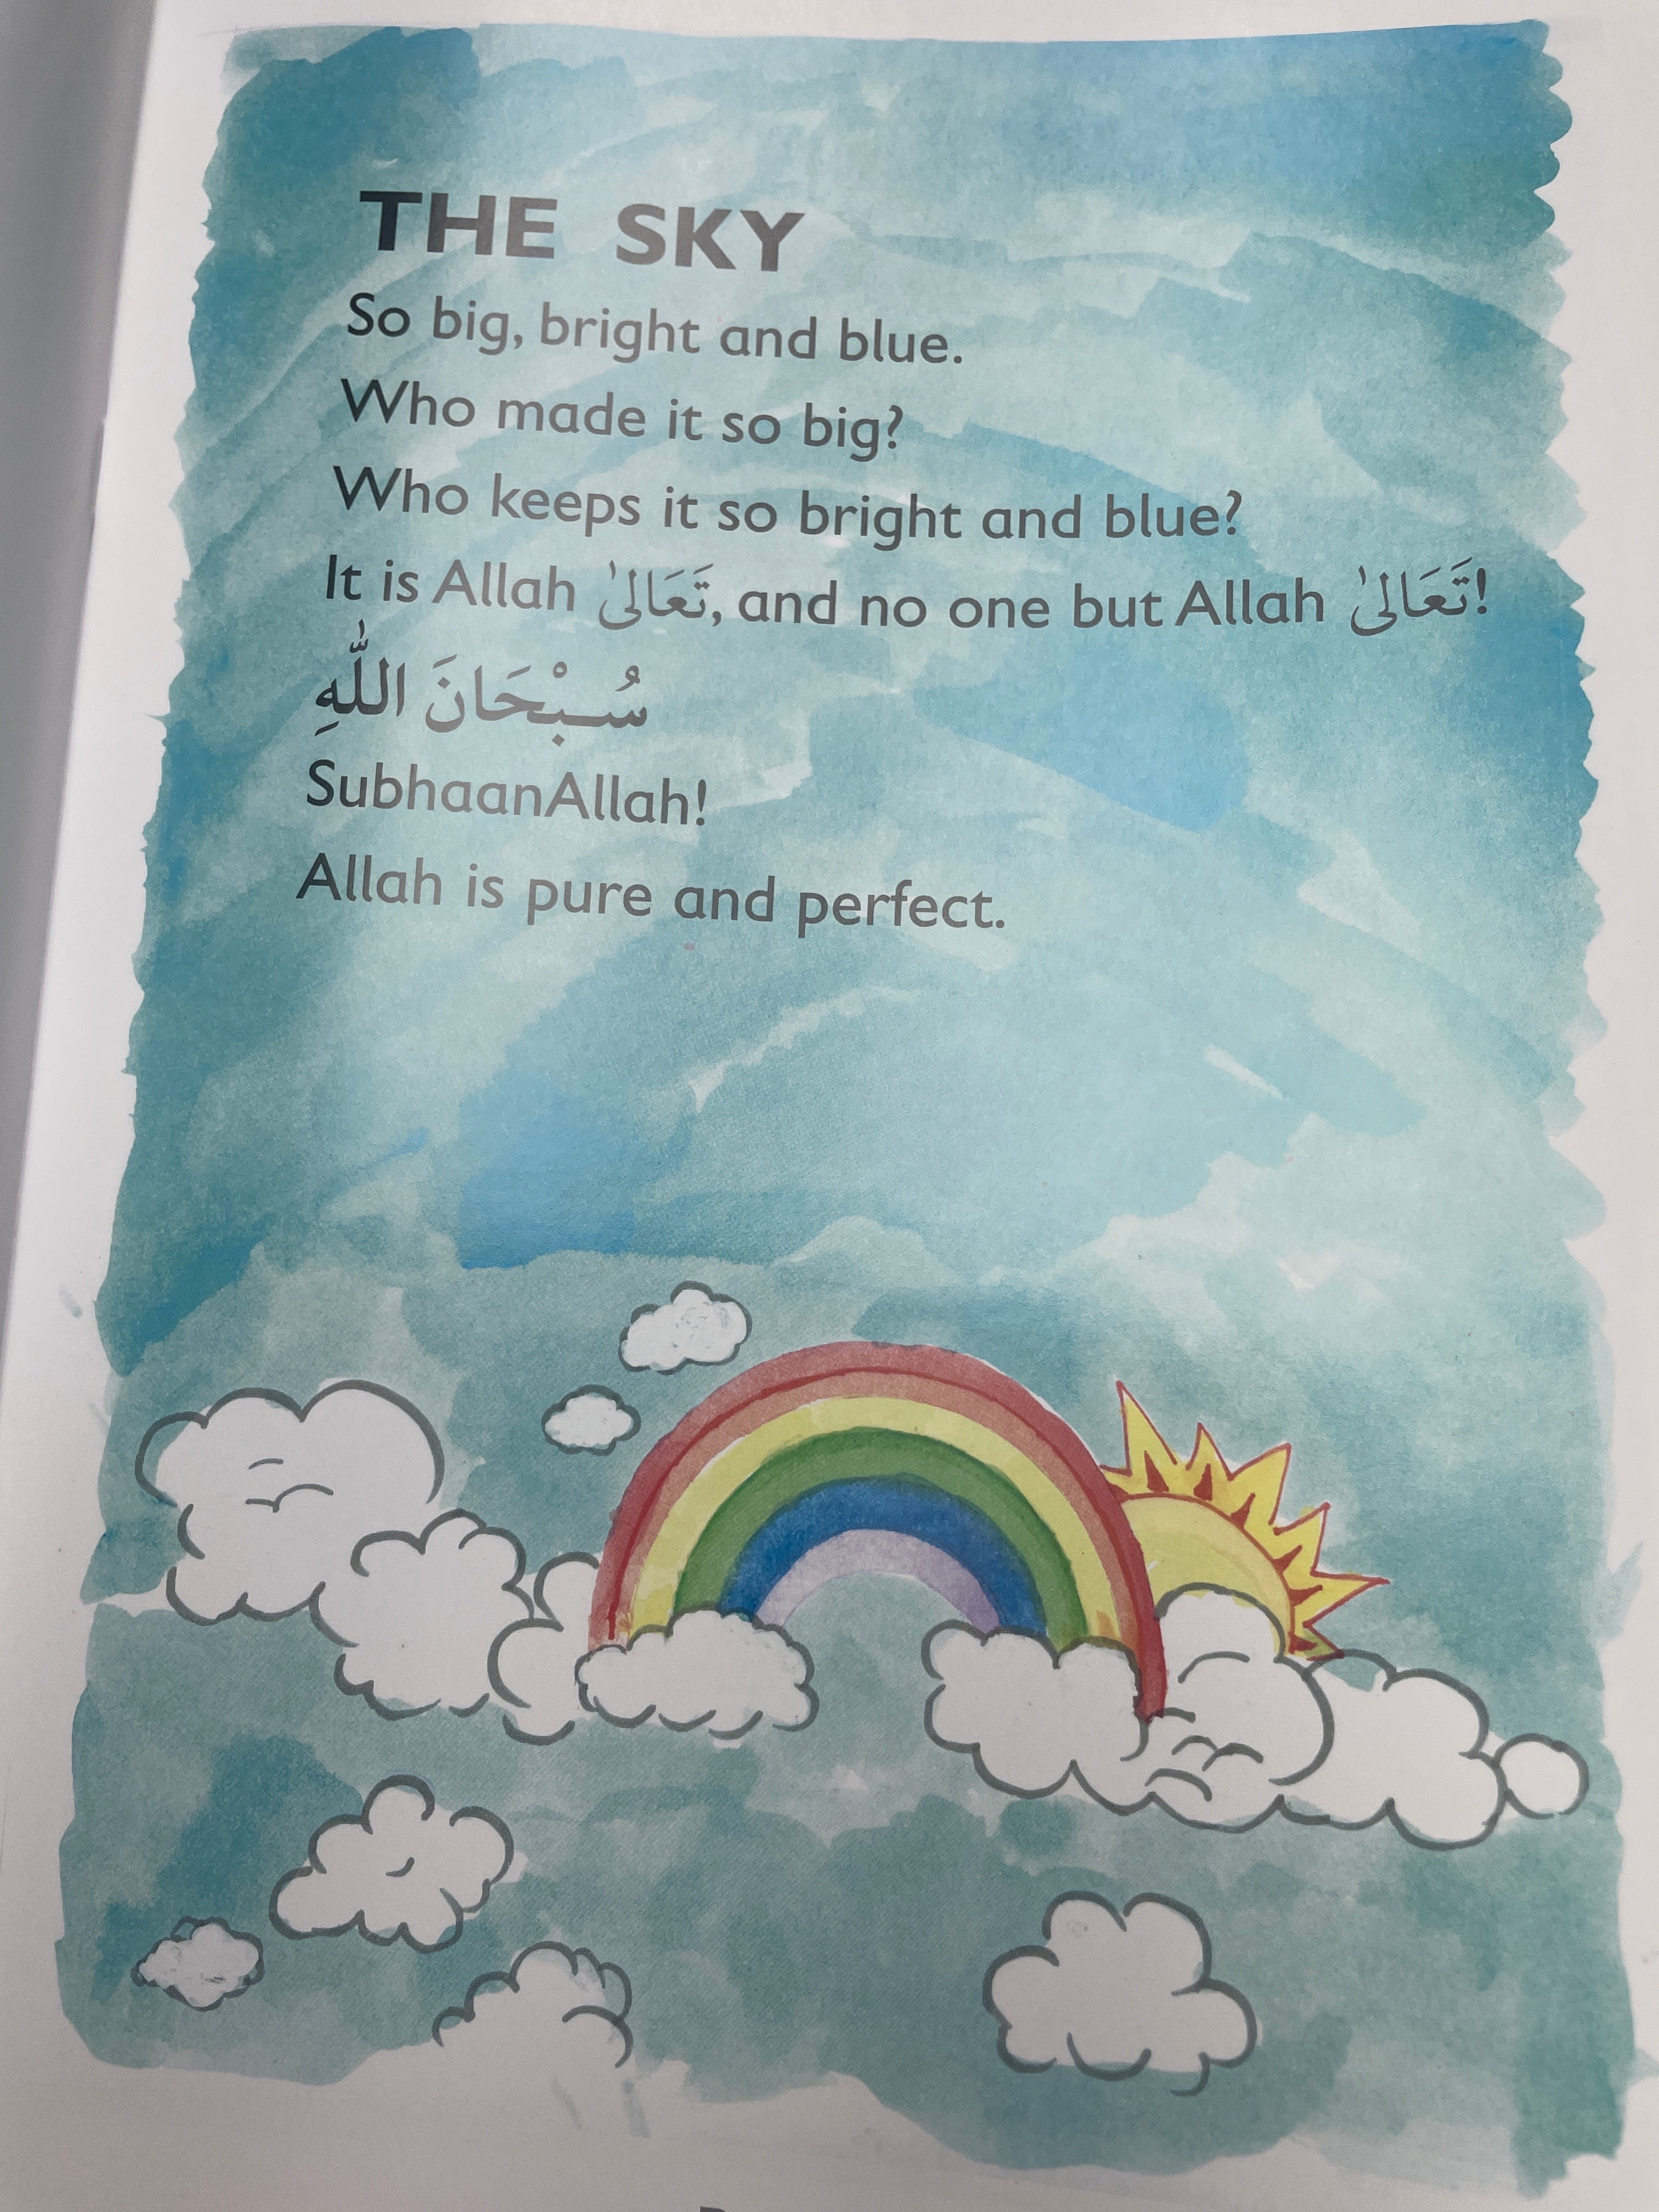 THE SKY
So big, bright and blue.
Who made it so big?
Who keeps it so bright and blue?
It is Allah تَعَالىٰ, and no one but Allah تَعَالىٰ!
سُبْحَانَ اللّٰهِ
SubhaanAllah!
Allah is pure and perfect.